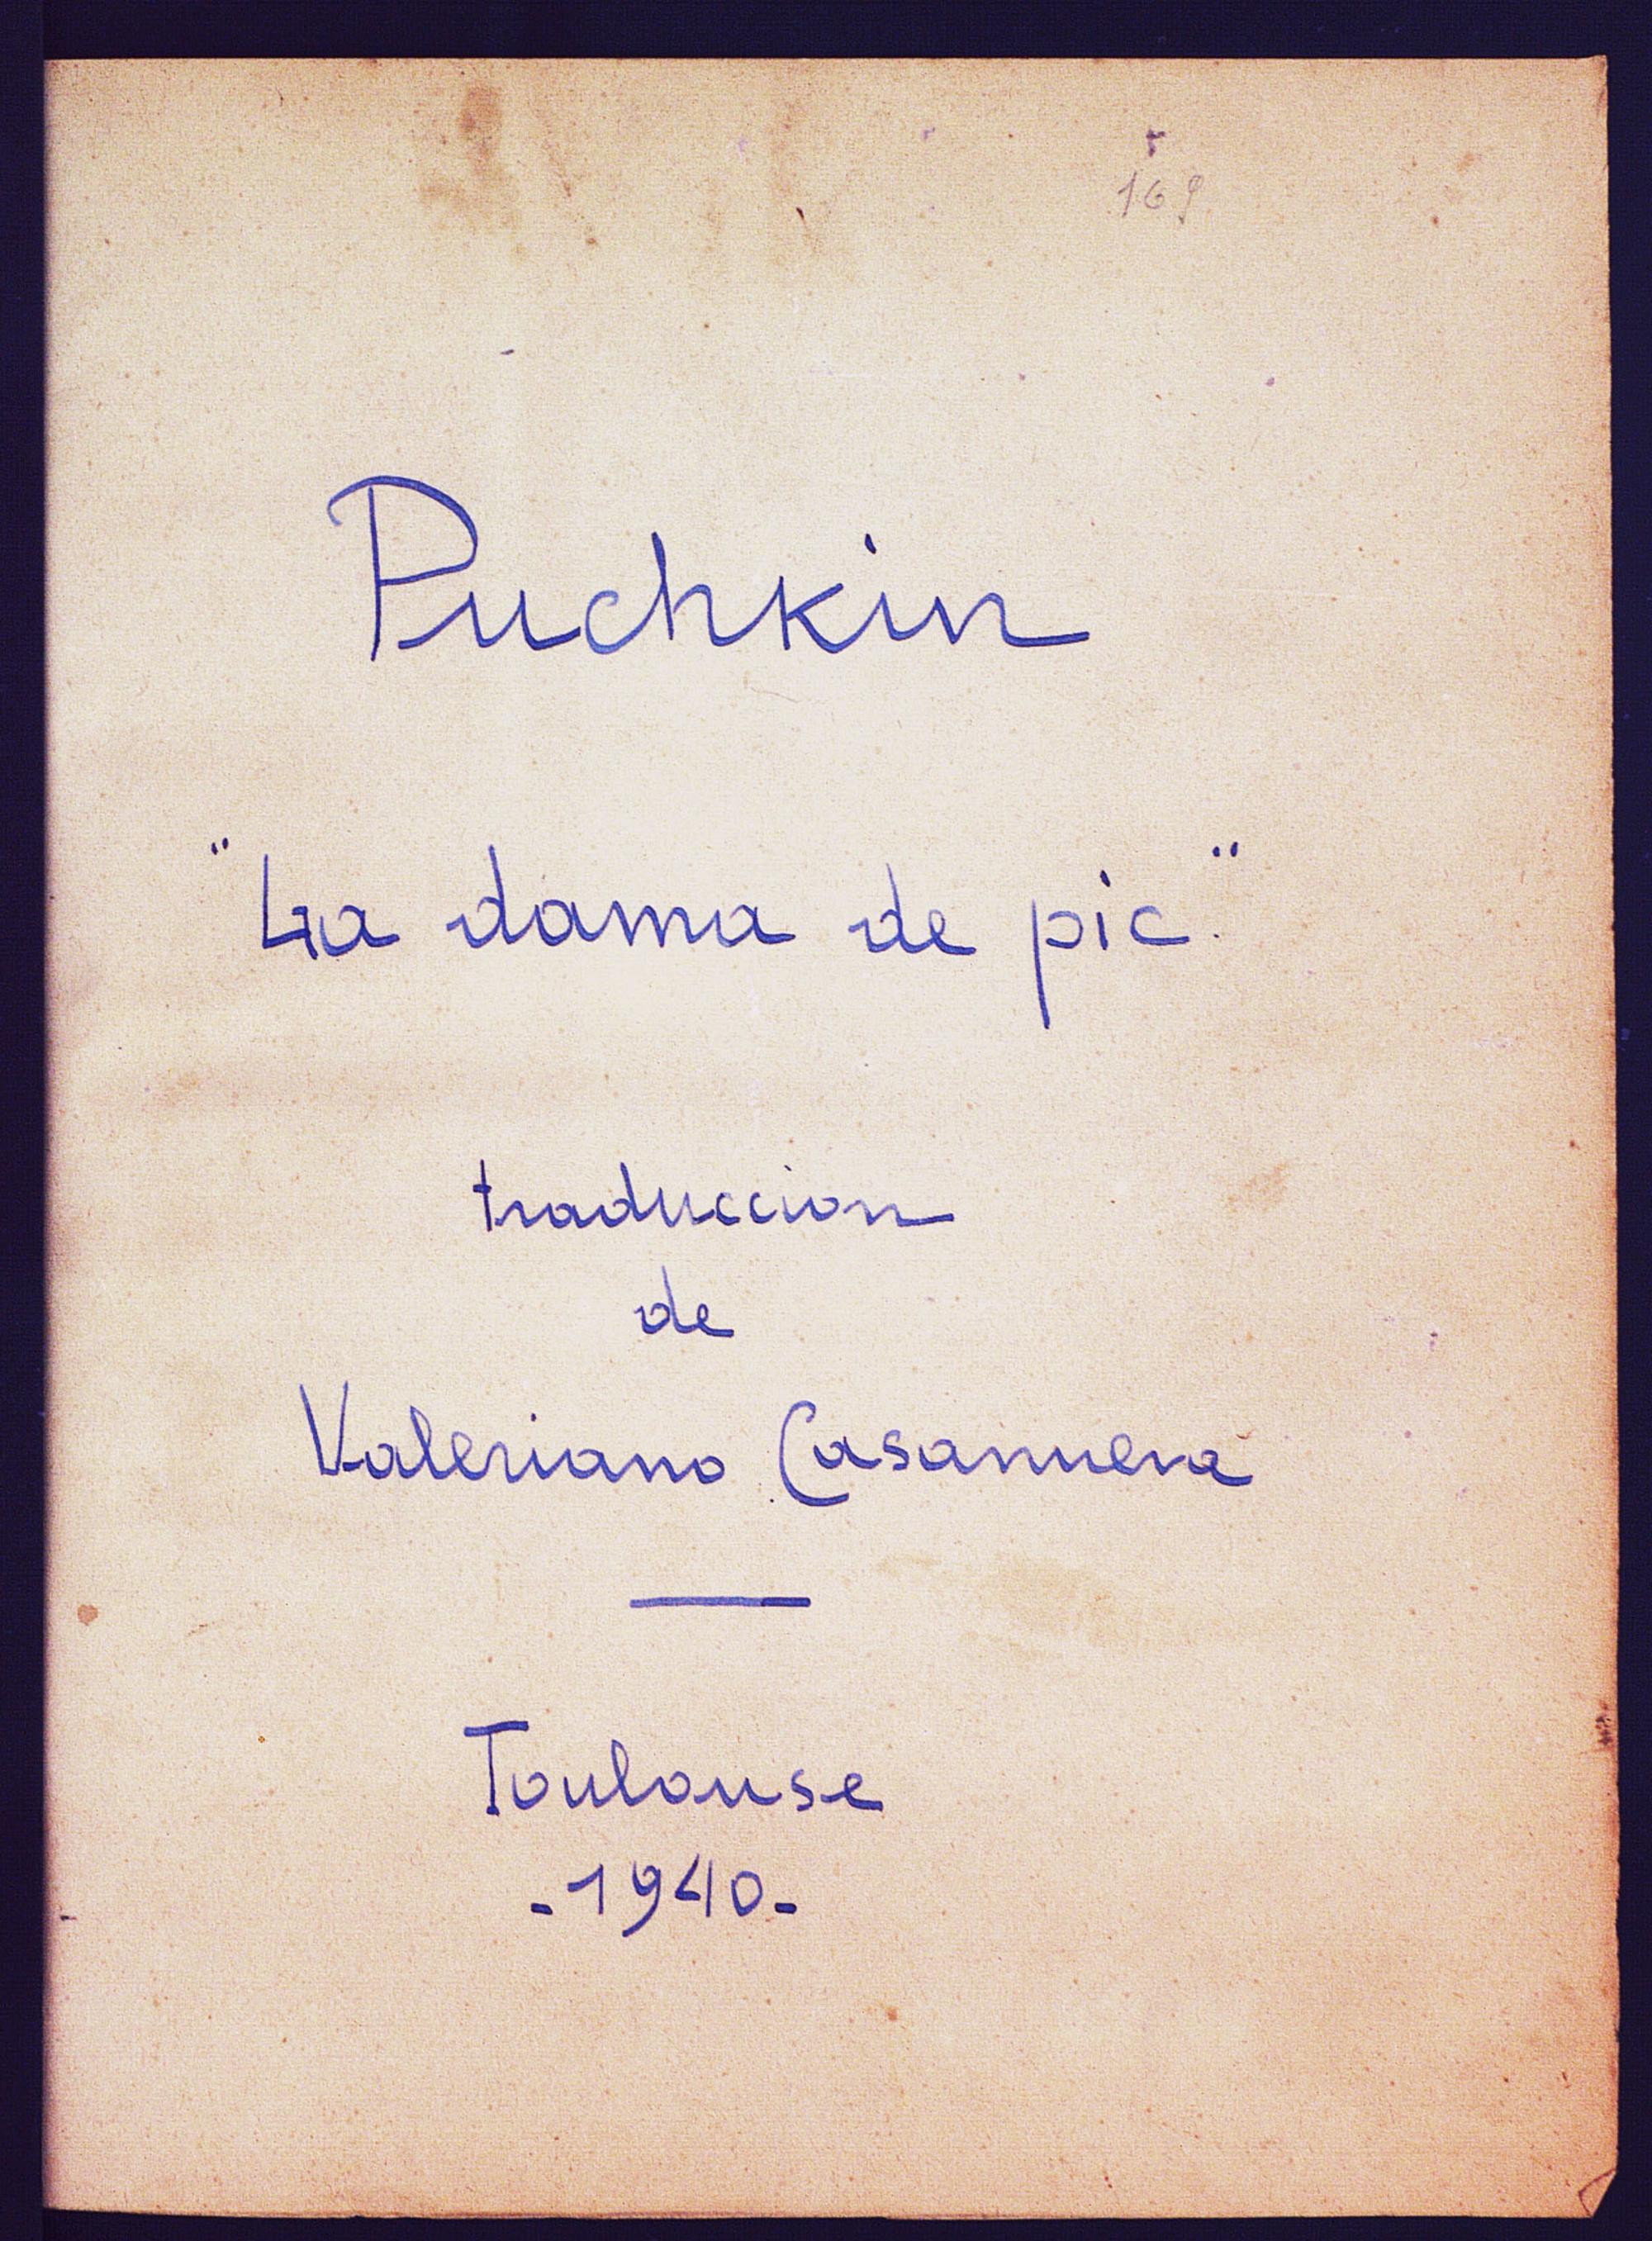 169
Puchkin
"La dama de pic."
traduccion
de
Valeriano Casanueva
Toulouse
-1940-